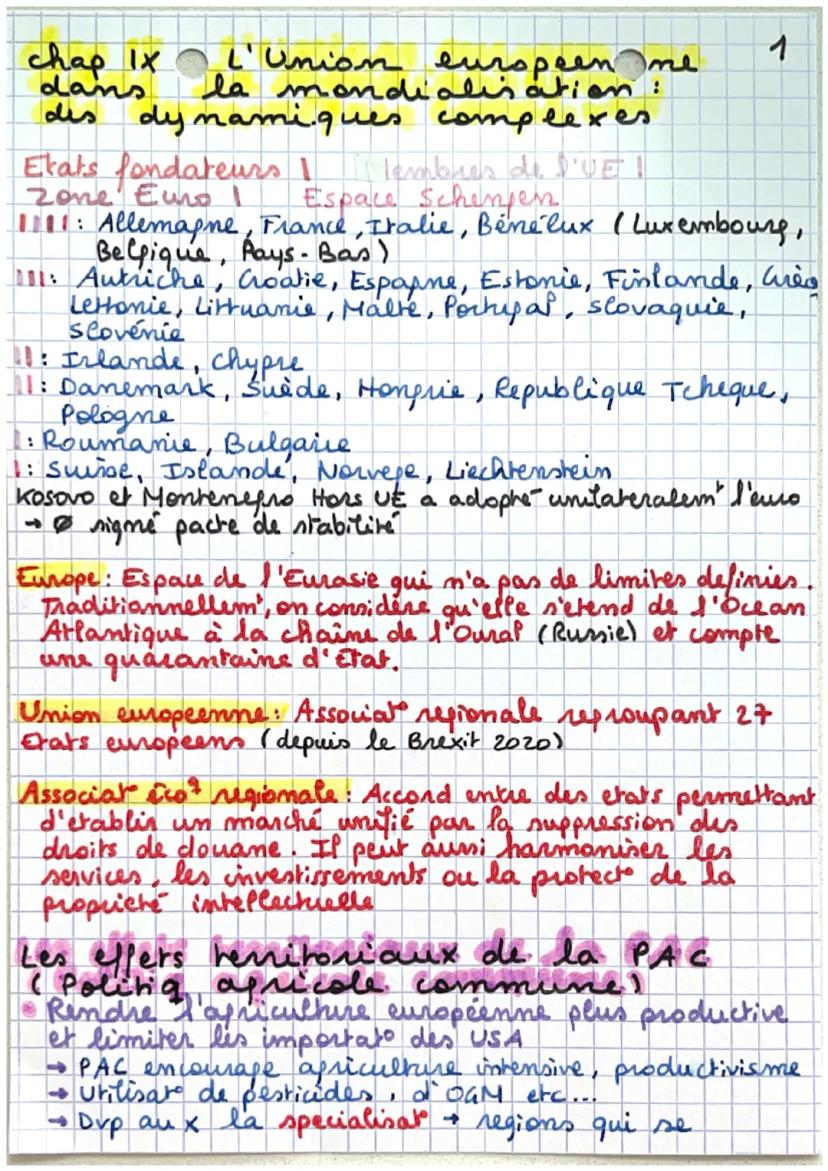 1
chap IX L'Union européenne
dans la mondialisation :
des dynamiques complexes
Etats fondateurs I Membres de l'UE I
Zone Euro I Espace Schengen
IIII: Allemagne, France, Italie, Bénélux (Luxembourg,
Belgique, Pays-Bas)
III: Autriche, Croatie, Espagne, Estonie, Finlande, Grèc
Lettonie, Littuanie, Malte, Portugal, slovaquie,
Slovénie
II: Irlande, Chypre
II: Danemark, Suède, Hongrie, Republique Tcheque,
Pologne
I: Roumanie, Bulgarie
I: Suisse, Islande, Norvege, Liechtenstein
Kosovo et Montenegro Hors UE a adopté unilateralemt l'euro
→ Ø signé pacte de stabilité
Europe: Espace de l'Eurasie qui n'a pas de limites definies.
Traditionnellemt, on considère qu'elle s'etend de l'Ocean
Atlantique à la chaîne de l'Oural (Russie) et compte
une quarantaine d'Etat.
Union europeenne: Associat° regionale regroupant 27
Etats européens (depuis le Brexit 2020)
Associat° éco° regionale: Accord entre des etats permettant
d'etablir un marché unifié par la suppression des
droits de douane. Il peut aussi harmoniser les
services, les investissements ou la protect° de la
propriété intellectuelle
Les effets territoriaux de la PAC
(Politiq agricole commune)
• Rendre l'agriculture européenne plus productive
et limiter les importat° des USA
→ PAC encourage agriculture intensive, productivisme
→ Utilisat° de pesticides, d'OGM etc...
→ Dvp aux la specialisat° → regions qui se